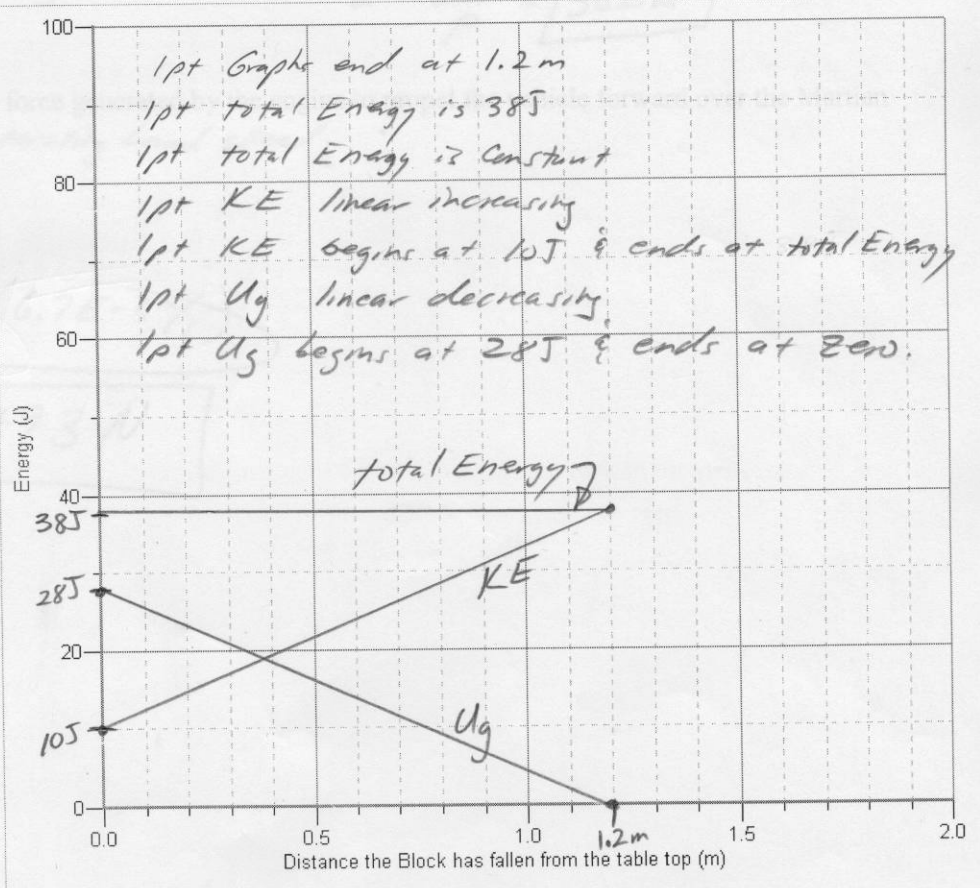 100
1pt Graphs end at 1.2m
1pt total Energy is 38J
1pt total Energy is constant
80
1pt KE linear increasing
1pt KE begins at 10J & ends at total Energy
1pt Ug linear decreasing
60
1pt Ug begins at 28J & ends at zero.
Energy (J)
total Energy
40
38J
KE
28J
20
Ug
10J
0
0.0 0.5 1.0 1.2m 1.5 2.0
Distance the Block has fallen from the table top (m)